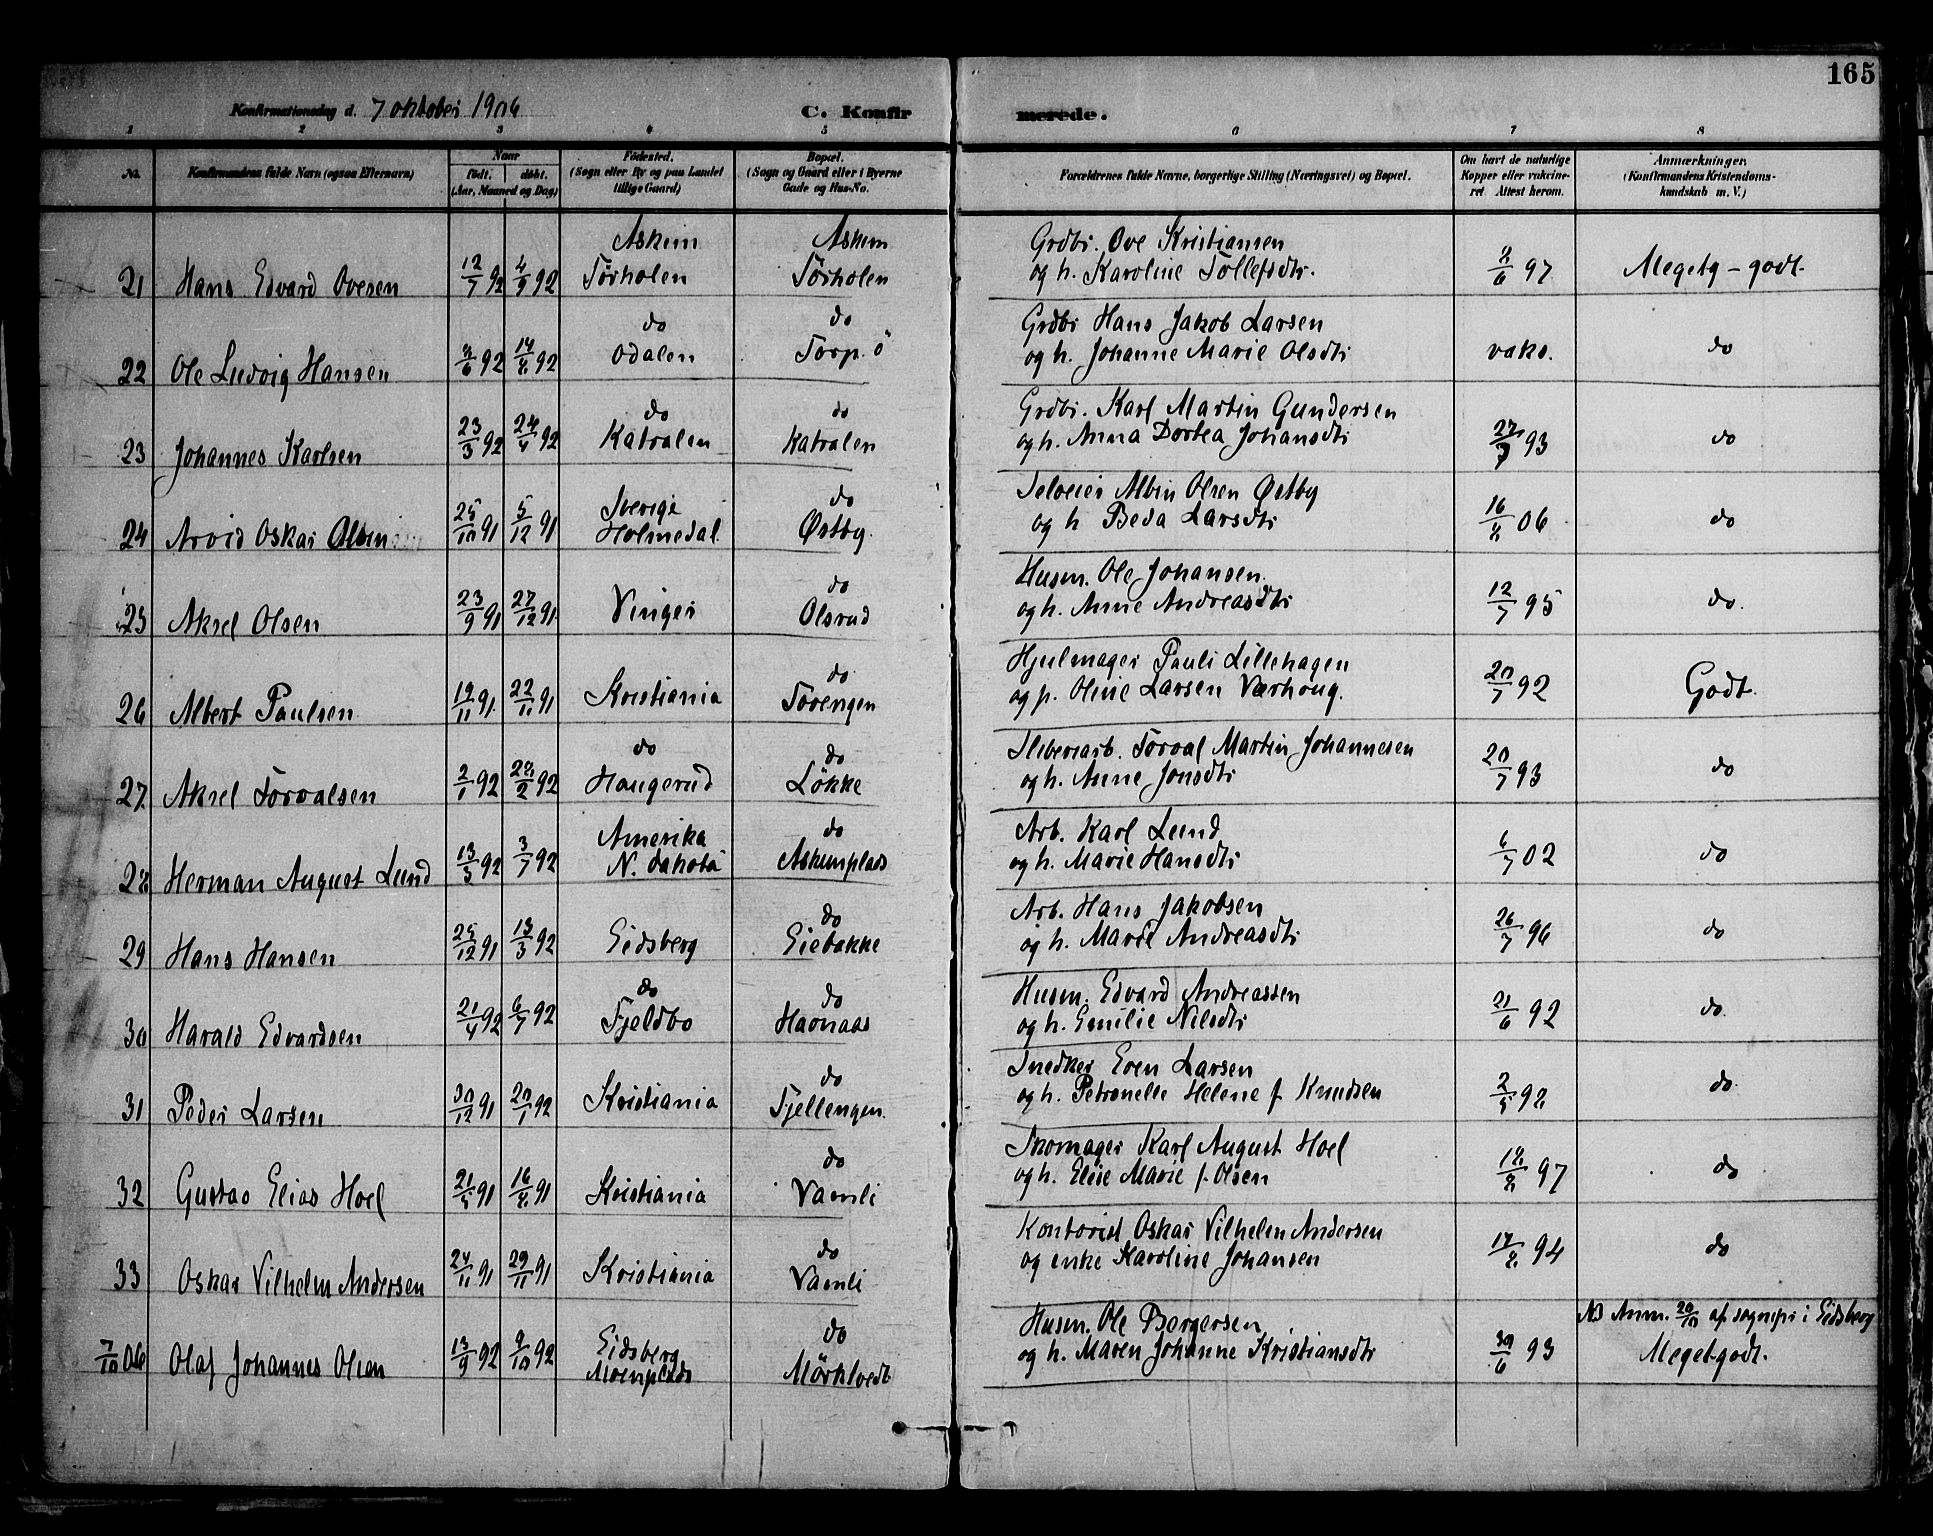 165
Konfirmationsdag d. 7 oktober 1906 C. Konfirmerede.
1 2 3 4 5 6 7 8
No. Konfirmandens fulde Navn (ogsaa Efternavn) Naar født. døbt. (Aar, Maaned og Dag) Fødested. (Sogn eller By og paa Landet tillige Gaard) Bopæl. (Sogn og Gaard eller i Byerne Gade og Hus-No. Forældrenes fulde Navne, borgerlige Stilling (Næringsvei) og Bopæl. Om havt de naturlige Kopper eller vakcineret. Attest herom. Anmærkninger. (Konfirmandens Kristendomskundskab m. V.)
Askim Askim Grdbr. Ove Kristiansen
21 Hans Edvard Ovesen 12/7 92 4/9 92 Törholen Törholen og h. Karoline Tollefsdtr. 8/6 97 Megetg - godt.
do do Grdbr Hans Jakob Larsen
22 Ole Ludvig Hansen 8/6 92 14/8 92 Odalen Torp. ö og h. Johanne Marie Olsdtr vaks. do
do do Grdbr. Karl Martin Gundersen
23 Johannes Karlsen 23/3 92 24/4 92 Katralen Katralen og h. Anna Dortea Johansdtr 27/9 93 do
Sverige do Selveier Albin Olsen Østby
24 Arvid Oskar Olsen 25/10 91 5/12 91 Holmedal Østby. og h Beda Larsdtr 16/8 06 do
do Husm. Ole Johansen.
25 Aksel Olsen 23/9 91 27/12 91 Vinger Olsrud og h. Anne Andreasdtr 12/7 95 do.
do Hjulmager Pauli Lillehagen
26 Albert Paulsen 19/11 91. 22/11 91 Kristiania Torengen og p. Oline Larsen Værhoug. 20/7 92 Godt.
do do Sliberiarb. Torval Martin Johannesen
27 Aksel Torvalsen 2/1 92 28/2 92 Haugerud Løkke og h. Anne Jonsdtr 20/7 93 do
Amerika do Arb. Karl Lund
28 Herman August Lund 13/3 92 3/7 92 N. Dakota Askimplads og h. Marie Hansdtr 6/7 02 do
do Arb. Hans Jakobsen
29 Hans Hansen 25/12 91 13/3 92 Eidsberg Giebakke og h. Marie Andreasdtr 26/7 96 do
do do Husm. Edvard Andreassen
30 Harald Edvardsen 21/4 92 6/7 92 Fjeldbo Havnaas og h. Emilie Nilsdtr 21/6 92 do.
do Snedker Even Larsen
31 Peder Larsen 30/12 91 20/1 92 Kristiania Fjellengen. og h. Petronelle Helene f. Knudsen 2/5 92 do.
do Skomager Karl August Hoel
32 Gustav Elias Hoel 21/5 91 16/8 91 Kristiania Vamli og h. Elise Marie f. Olsen 18/8 97 do
do Kontorist Oskar Vilhelm Andersen
33 Oskar Vilhelm Andersen 24/11 91 29/11 91 Kristiania Vamli og enke Karoline Johansen 17/8 94 do
Eidsberg do Husm. Ole Børgersen NB Anm. 20/10 af sognepr i Eidsberg
7/10 06 Olaf Johannes Olsen 13/9 92 9/10 92 Moenplads Mörktvedt og h. Maren Johanne Kristiansdtr 30/6 93 Meget godt.